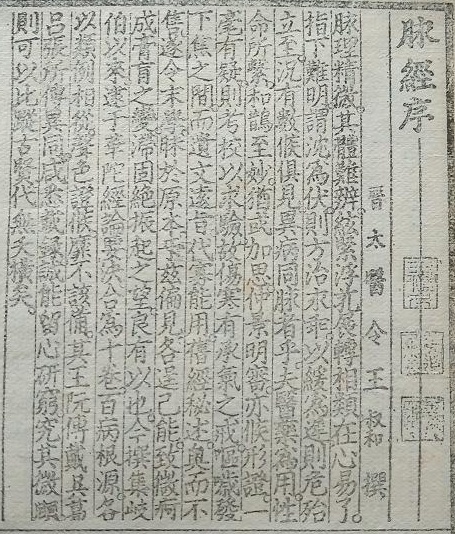 脉經序
晉太醫令王叔和撰
脉理精微。其體難辨。絃緊浮芤。展轉相類。在心易了。
指下難明。謂沈為伏。則方治永乖。以緩為遲。則危殆
立至。况有數候俱見。異病同脉者乎。夫醫藥為用。性
命所繫。和鵲至妙。猶或加思。仲景明審。亦候形證。一
毫有疑。則考校以求驗。故傷寒有承氣之戒。嘔噦發
下焦之間。而遺文遠旨。代寡能用。舊經秘述。奧而不
售。遂令末學。昧於原本。茲偏見。各逞己能。致微痾
成膏肓之變。滯固絶振起之望。良有以也。今撰集岐
伯以來。逮于華佗。經論要決。合為十卷。百病根源。各
以類例相從。聲色證候。靡不該備。其王阮傅戴吳葛
呂張。所傳異同。咸悉載錄。誠能留心研窮。究其微賾。
則可以比蹤古賢。代無夭橫矣。